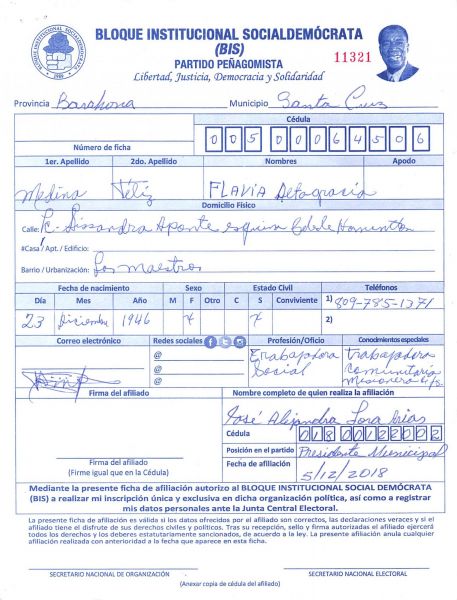 BLOQUE INSTITUCIONAL SOCIALDEMÓCRATA
(BIS)
PARTIDO PEÑAGOMISTA
Libertad, Justicia, Democracia y Solidaridad
11321
BLOQUE INSTITUCIONAL SOCIALDEMOCRATA
Provincia Barahona Municipio Santa Cruz
Cédula
Número de ficha 0 0 5 0 0 0 6 4 5 0 6
1er. Apellido 2do. Apellido Nombres Apodo
Medina Féliz FLAVIA Altagracia
Domicilio Físico
Calle: C. Lissandra Aponte esquina
#Casa / Apt. / Edificio:
Barrio / Urbanización: Los maestros
Fecha de nacimiento Sexo Estado Civil Teléfonos
Día Mes Año M F Otro C S Conviviente 1) 809-785-1371
23 Diciembre 1946 x x 2)
Correo electrónico Redes sociales Profesión/Oficio Conocimientos especiales
@
@
@
Trabajadora Social
trabajadora
comunitaria
Misionera
Firma del afiliado Nombre completo de quien realiza la afiliación
José Alejandra Lora Arias
Cédula 018 00122002
Posición en el partido Presidente Municipal
Firma del afiliado
(Firme igual que en la Cédula)
Fecha de afiliación 5/12/2018
Mediante la presente ficha de afiliación autorizo al BLOQUE INSTITUCIONAL SOCIAL DEMÓCRATA
(BIS) a realizar mi inscripción única y exclusiva en dicha organización política, así como a registrar
mis datos personales ante la Junta Central Electoral.
La presente ficha de afiliación es válida si los datos ofrecidos por el afiliado son correctos, las declaraciones veraces y si el
afiliado tiene el disfrute de sus derechos civiles y políticos. Tras su recepción, sello y firma autorizadas el afiliado ejercerá
todos los derechos y los deberes estatutariamente sancionados, de acuerdo a la ley. La presente afiliación anula cualquier
afiliación realizada con anterioridad a la fecha que aparece en esta ficha.
SECRETARIO NACIONAL DE ORGANIZACIÓN SECRETARIO NACIONAL ELECTORAL
(Anexar copia de cédula del afiliado)